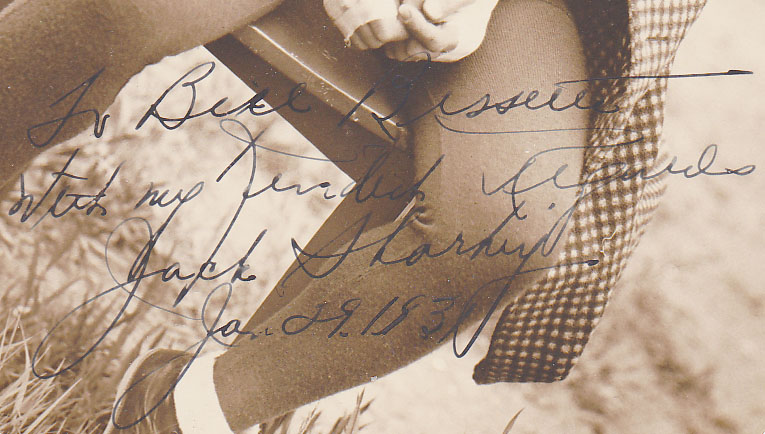 To Bill Bissette
With my Kindest Regards
Jack Sharkey
Jan. 29. 1931